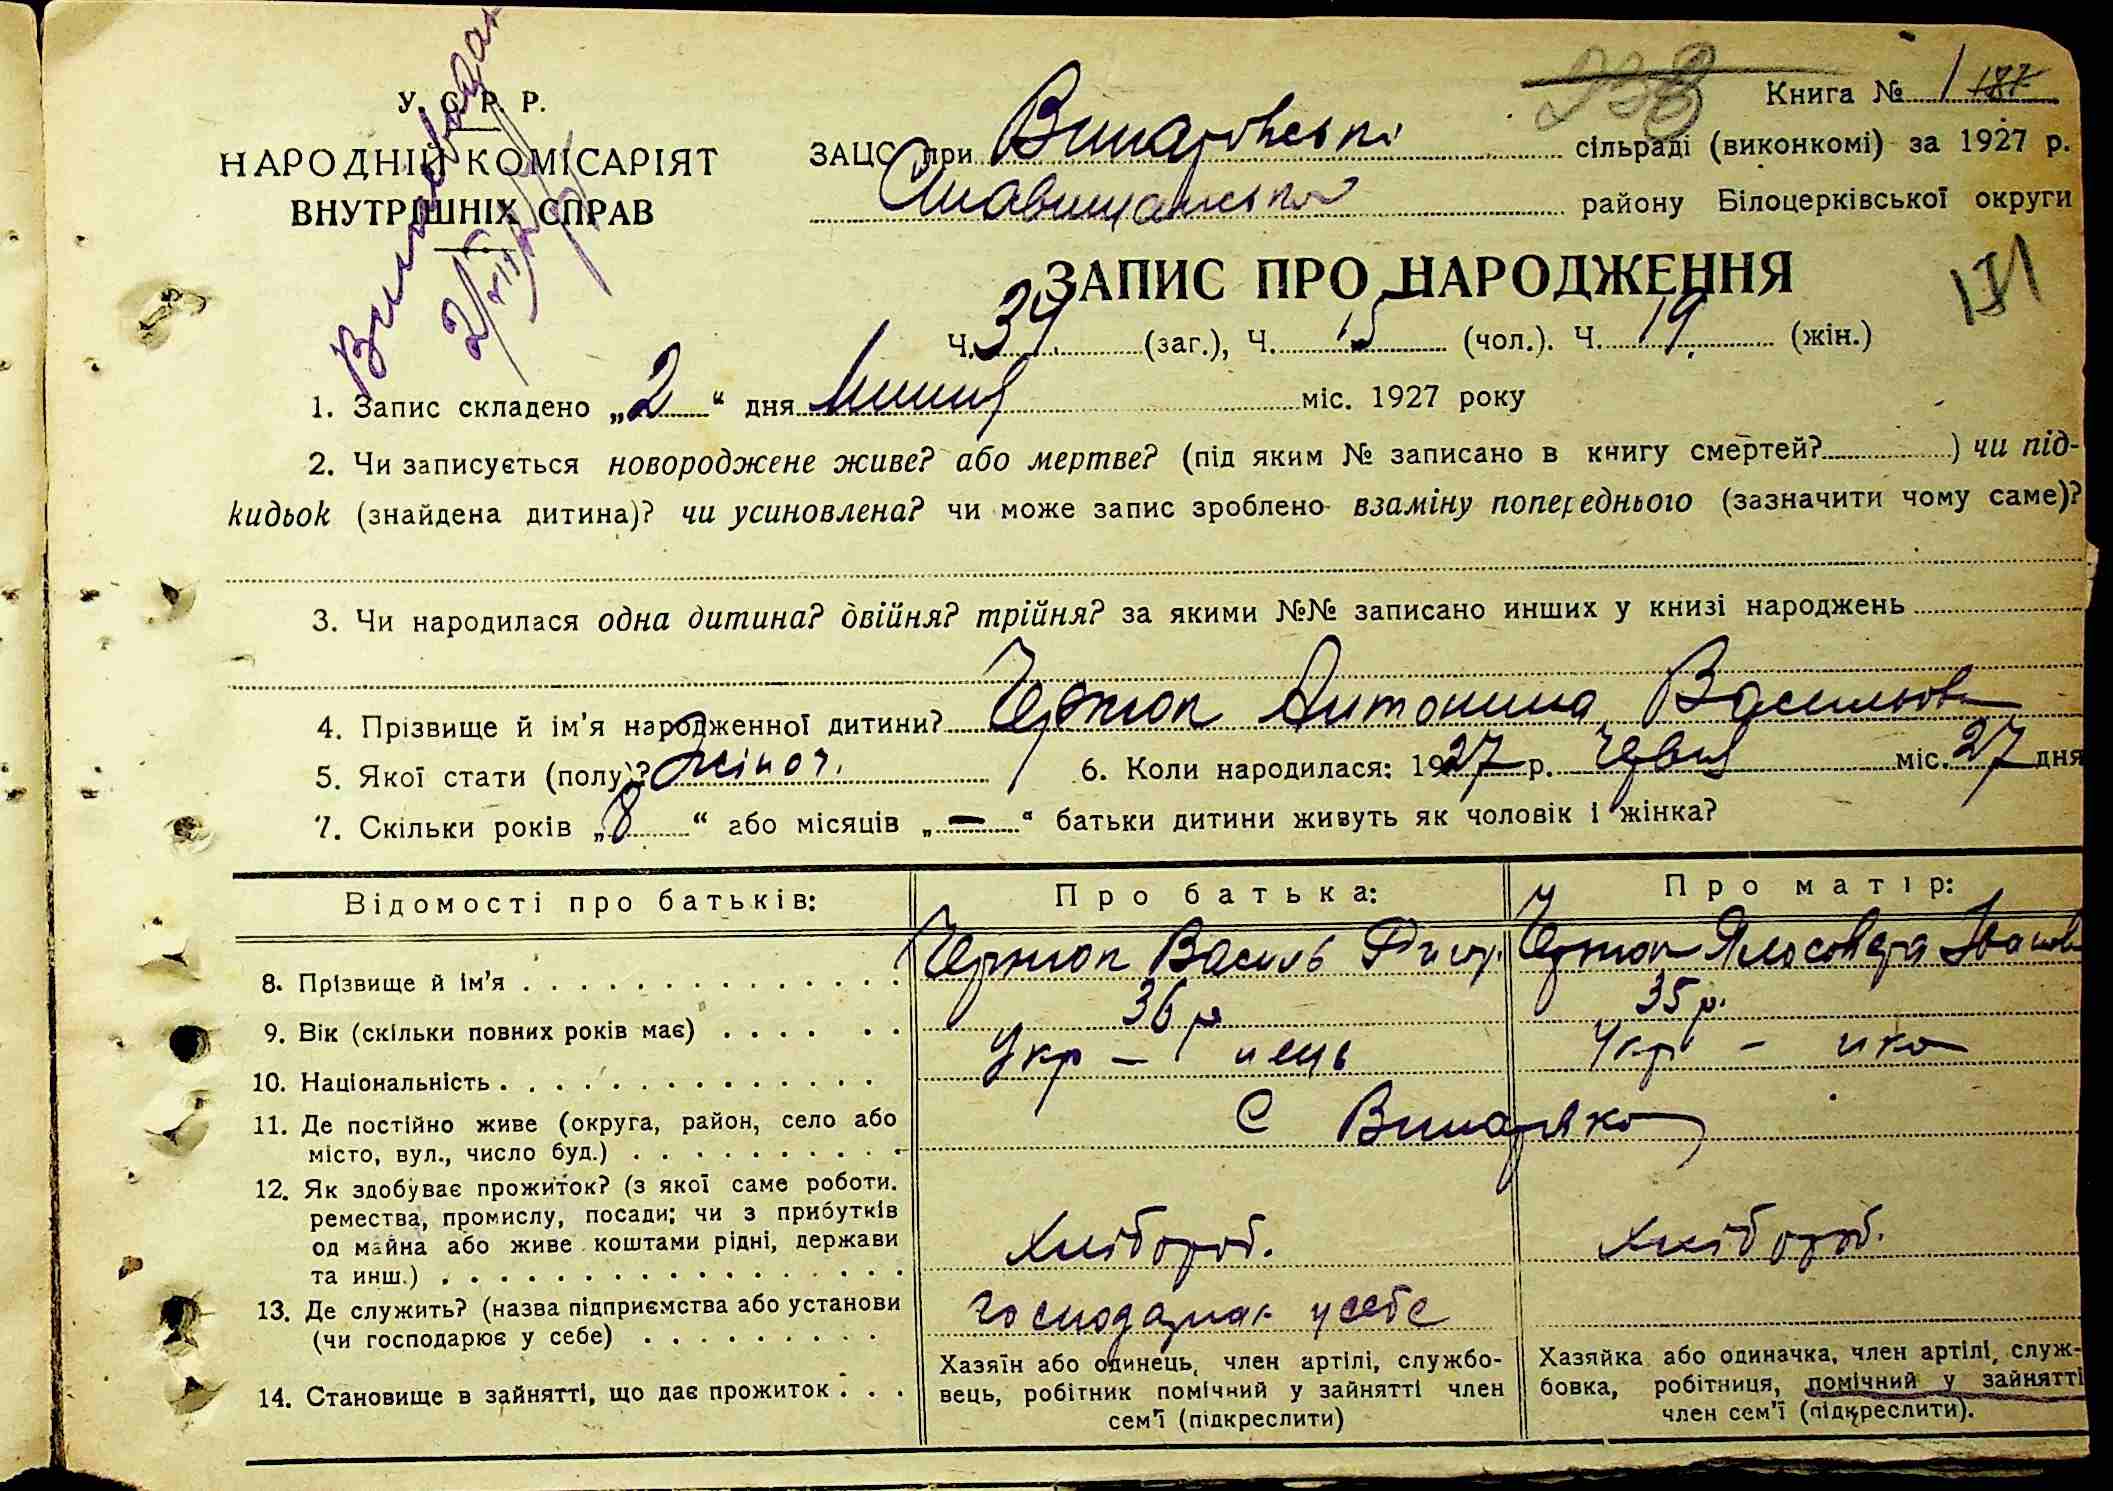 У. С. Р. Р.
НАРОДНІЙ КОМІСАРІЯТ
ВНУТРІШНІХ СПРАВ
238
Книга № 1 187
ЗАЦС при Винарській сільраді (виконкомі) за 1927 р.
Ставищанського району Білоцерківської округи
ЗАПИС ПРО НАРОДЖЕННЯ
Ч. 34 (заг.), Ч. 15 (чол.). Ч. 19 (жін.)
1. Запис складено „2“ дня Липня міс. 1927 року
2. Чи записується новороджене живе? або мертве? (під яким № записано в книгу смертей? ) чи під-
кидьок (знайдена дитина)? чи усиновлена? чи може запис зроблено взаміну попереднього (зазначити чому саме)?
3. Чи народилася одна дитина? двійня? трійня? за якими №№ записано инших у книзі народжень
4. Прізвище й ім'я народженної дитини? Чернюк Антонина Васильовн
5. Якої стати (полу)? жіноч. 6. Коли народилася: 1927 р. Червня міс. 27 дня
7. Скільки років „8“ або місяців „—“ батьки дитини живуть як чоловік і жінка?
Відомості про батьків: Про батька: Про матір:
8. Прізвище й ім'я Чернюк Василь Григ. Чернюк Іванов
9. Вік (скільки повних років має) 36 р 35 р.
10. Національність Укр – нець Укр – нка
11. Де постійно живе (округа, район, село або
місто, вул., число буд.) С Винарка
12. Як здобуває прожиток? (з якої саме роботи.
ремества, промислу, посади; чи з прибутків
од майна або живе коштами рідні, держави
та инш.) Хлібороб. Хлібороб.
13. Де служить? (назва підприємства або установи
(чи господарює у себе) у себе
14. Становище в зайнятті, що дає прожиток
Хазяїн або одинець, член артілі, службо-
вець, робітник помічний у зайнятті член
сем'ї (підкреслити)
Хазяйка або одиначка, член артілі, служ-
бовка, робітниця, помічний у зайнятті
член сем'ї (підкреслити).